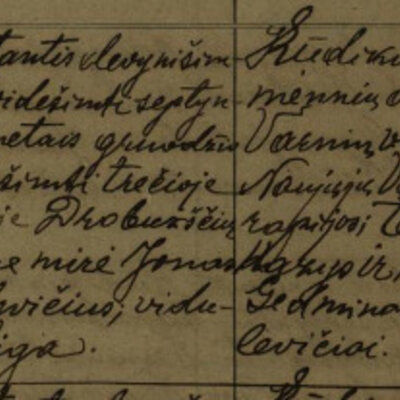 tantis devynišim-
videšimti septyn-
metais gruodžio
šimti trečioje
je Drobukščių
me mirė Jonas
levičius, vidu-
liga.
Kūdiki
mėnnių a
Varnių v
Naujųjų V
rapijos;
ir,
Gedmina
levičioi.